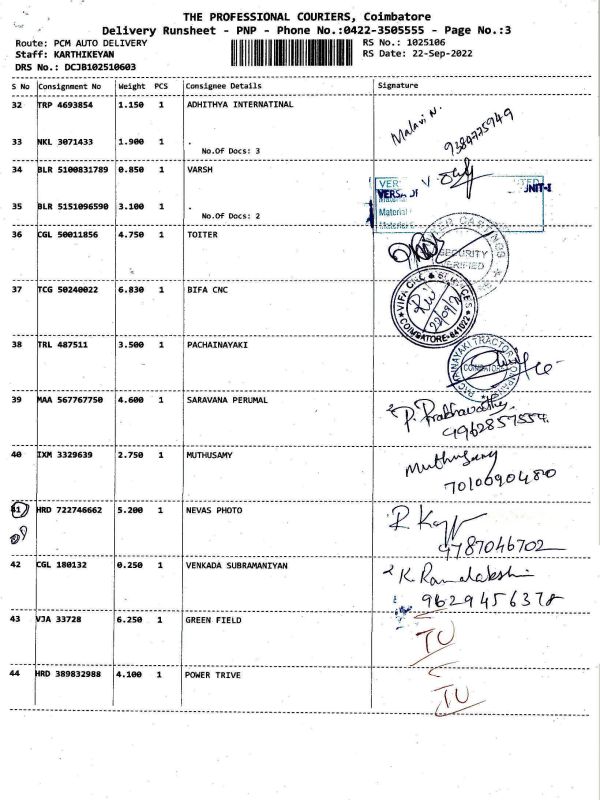 THE PROFESSIONAL COURIERS, Coimbatore
Delivery Runsheet - PNP - Phone No.:0422-3505555 - Page No.:3
Route: PCM AUTO DELIVERY
RS No.: 1025106
Staff: KARTHIKEYAN
RS Date: 22-Sep-2022
DRS No.: DCJB102510603
S No Consignment No Weight PCS Consignee Details Signature
32 TRP 4693854 1.150 1 ADHITHYA INTERNATINAL
Malavi N.
9384775949
33 NKL 3071433 1.900 1 .
No.Of Docs: 3
34 BLR 5100831789 0.850 1 VARSH
UNIT-I
35 BLR 5151096590 3.100 1 .
No.Of Docs: 2
Material
Material
36 CGL 50011856 4.750 1 TOITER
CASTINGS
SECURITY
VERIFIED
37 TCG 50240022 6.830 1 BIFA CNC
VIFA CNC & SERVICES
22/09/22
COIMBATORE-641022
38 TRL 487511 3.500 1 PACHAINAYAKI
PACHAINAYAKI TRACTOR COMPANY
COIMBATORE
39 MAA 567767750 4.600 1 SARAVANA PERUMAL
P. Prabhavathy
40 IXM 3329639 2.750 1 MUTHUSAMY
Muthusamy
7010090480
41 HRD 722746662 5.200 1 NEVAS PHOTO
9787046702
42 CGL 180132 0.250 1 VENKADA SUBRAMANIYAN
K Ramalakshmi
9629456378
43 VJA 33728 6.250 1 GREEN FIELD
TU
44 HRD 389832988 4.100 1 POWER TRIVE
TU